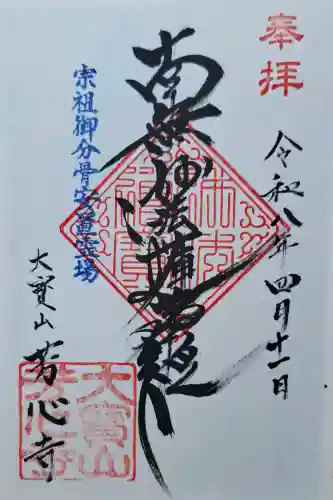 奉拝
令和八年四月十一日
南無妙法蓮華経
宗祖御分骨安置霊場
大寳山
芳心寺
大寳山
芳心寺